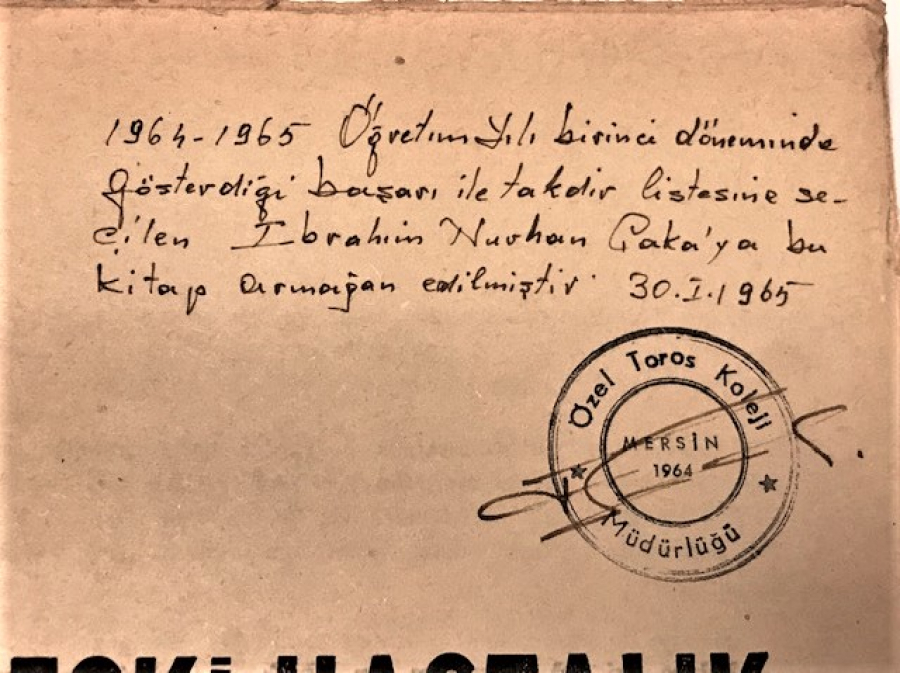 1964-1965 Öğretim Yılı birinci döneminde
gösterdiği başarı ile takdir listesine se-
çilen İbrahim Nurhan Çaka'ya bu
kitap armağan edilmiştir 30.I.1965
Özel Toros Koleji
MERSİN
1964
Müdürlüğü
ESKİ HASTALIK